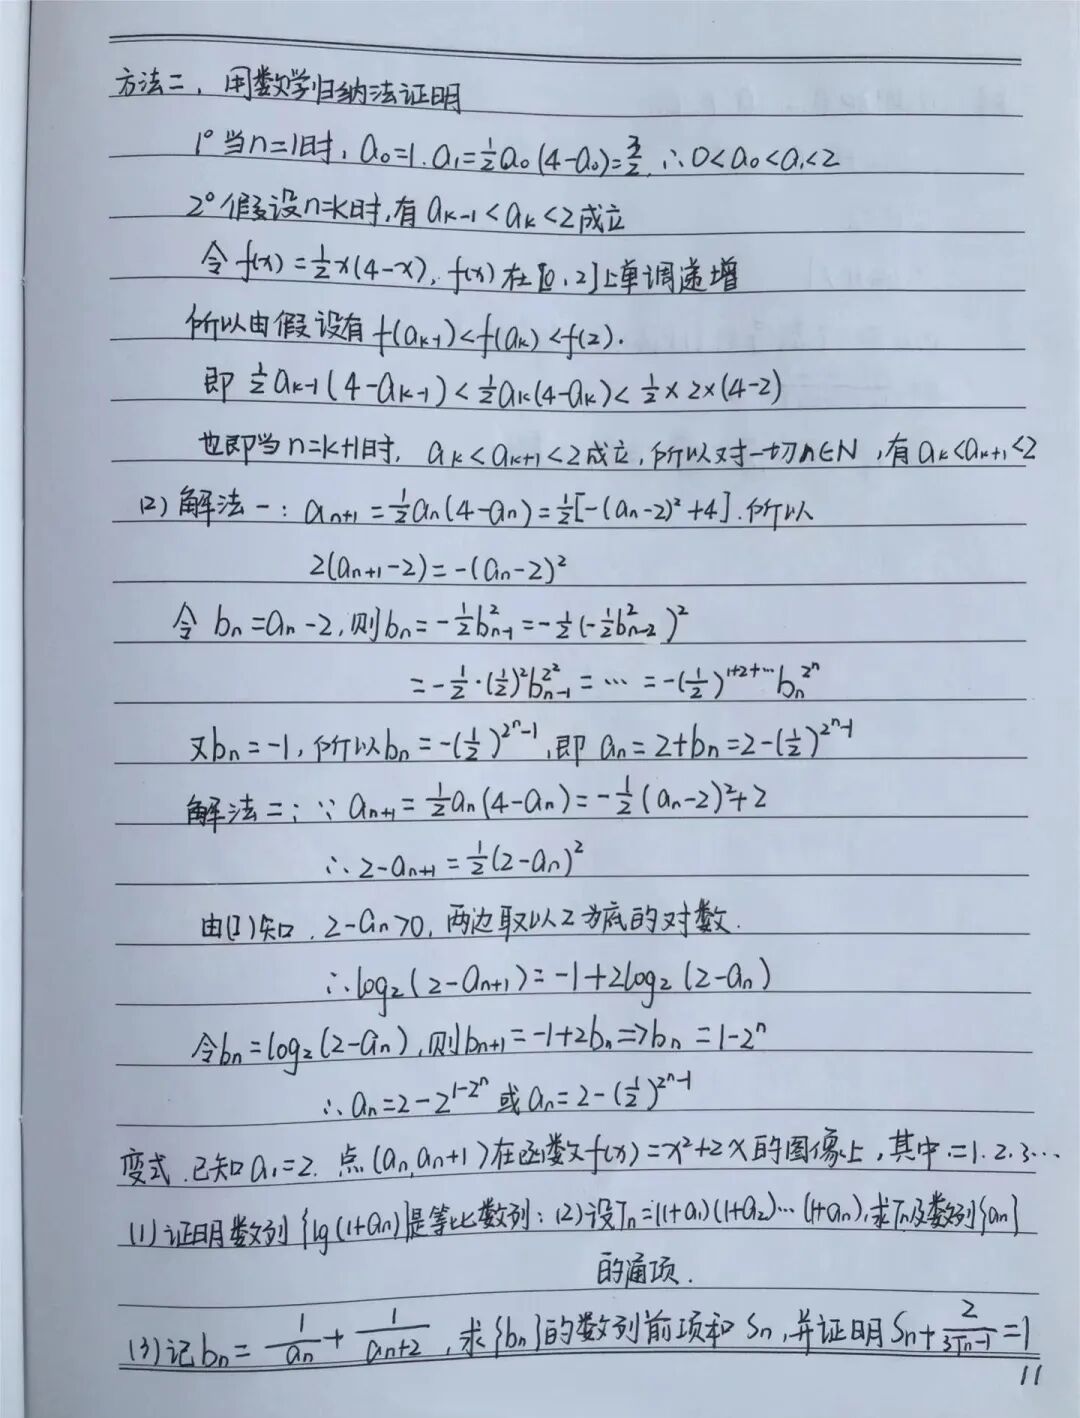 方法二，用数学归纳法证明
1° 当n=1时，a₀=1. a₁=½a₀(4-a₀)=3/2, ∴0<a₀<a₁<2
2° 假设n=k时,有aₖ₋₁<aₖ<2成立
令f(x)=½x(4-x), f(x)在[0,2]上单调递增
所以由假设有f(aₖ₋₁)<f(aₖ)<f(2).
即 ½aₖ₋₁(4-aₖ₋₁)<½aₖ(4-aₖ)<½×2×(4-2)
也即当n=k+1时, aₖ<aₖ₊₁<2成立,所以对一切n∈N,有aₖ<aₖ₊₁<2
(2)解法一: aₙ₊₁=½aₙ(4-aₙ)=½[-(aₙ-2)²+4].所以
2(aₙ₊₁-2)=-(aₙ-2)²
令 bₙ=aₙ-2,则bₙ=-½bₙ₋₁²=-½(-½bₙ₋₂²)²
=-½·(½)²bₙ₋₁^{2²}=…=-(½)^{1+2+…}bₙ^{2ⁿ}
又bₙ=-1,所以bₙ=-(½)^{2ⁿ-1},即 aₙ=2+bₙ=2-(½)^{2ⁿ-1}
解法二; ∵aₙ₊₁=½aₙ(4-aₙ)=-½(aₙ-2)²+2
∴2-aₙ₊₁=½(2-aₙ)²
由(1)知, 2-aₙ>0, 两边取以2为底的对数.
∴log₂(2-aₙ₊₁)=-1+2log₂(2-aₙ)
令bₙ=log₂(2-aₙ),则bₙ₊₁=-1+2bₙ=>bₙ=1-2ⁿ
∴aₙ=2-2^{1-2ⁿ}或aₙ=2-(½)^{2ⁿ-1}
变式.已知a₁=2. 点(aₙ,aₙ+1)在函数f(x)=x²+2x的图像上,其中=1.2.3…
(1)证明数列{lg(1+aₙ)}是等比数列:(2)设Tₙ=(1+a₁)(1+a₂)…(1+aₙ),求Tₙ及数列{aₙ}
的通项.
(3)记bₙ=1/aₙ+1/(aₙ+2),求{bₙ}的数列前项和Sₙ,并证明Sₙ+2/(3Tₙ-1)=1
11